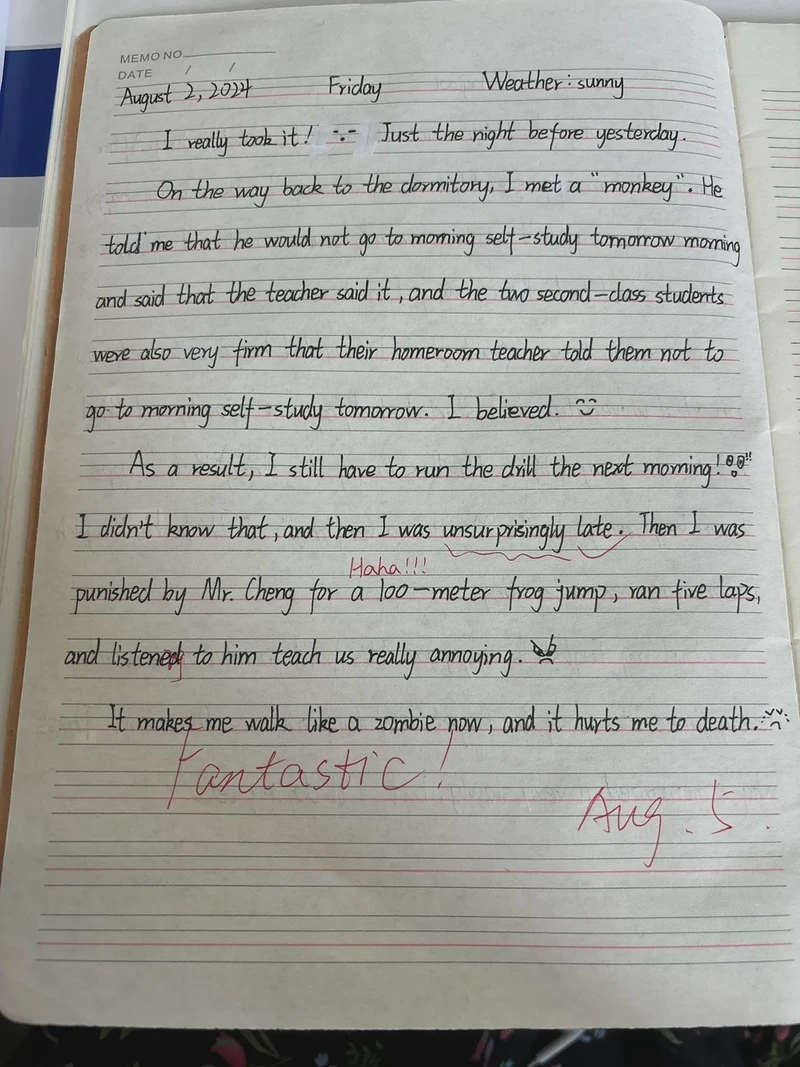 MEMO NO.
DATE / /
August 2, 2024 Friday Weather: sunny
I really took it! Just the night before yesterday.
On the way back to the dormitory, I met a "monkey". He
told me that he would not go to morning self-study tomorrow morning
and said that the teacher said it, and the two second-class students
were also very firm that their homeroom teacher told them not to
go to morning self-study tomorrow. I believed.
As a result, I still have to run the drill the next morning!
I didn't know that, and then I was unsurprisingly late. Then I was
Haha!!!
punished by Mr. Cheng for a 100-meter frog jump, ran five laps,
and listened to him teach us really annoying.
It makes me walk like a zombie now, and it hurts me to death.
Fantastic!
Aug. 5.